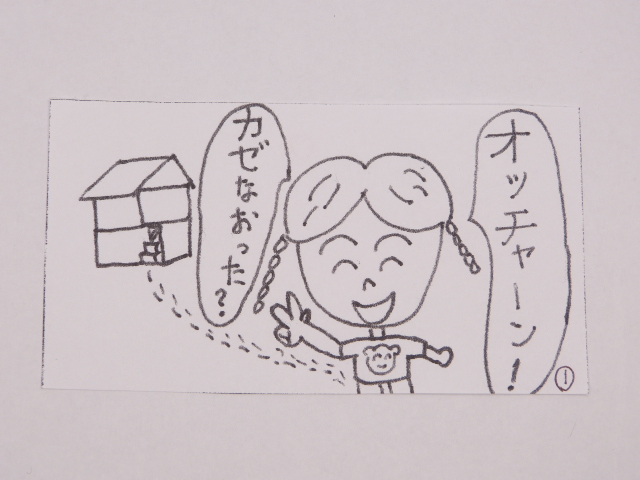 オッチャーン!
カゼなおった?
①